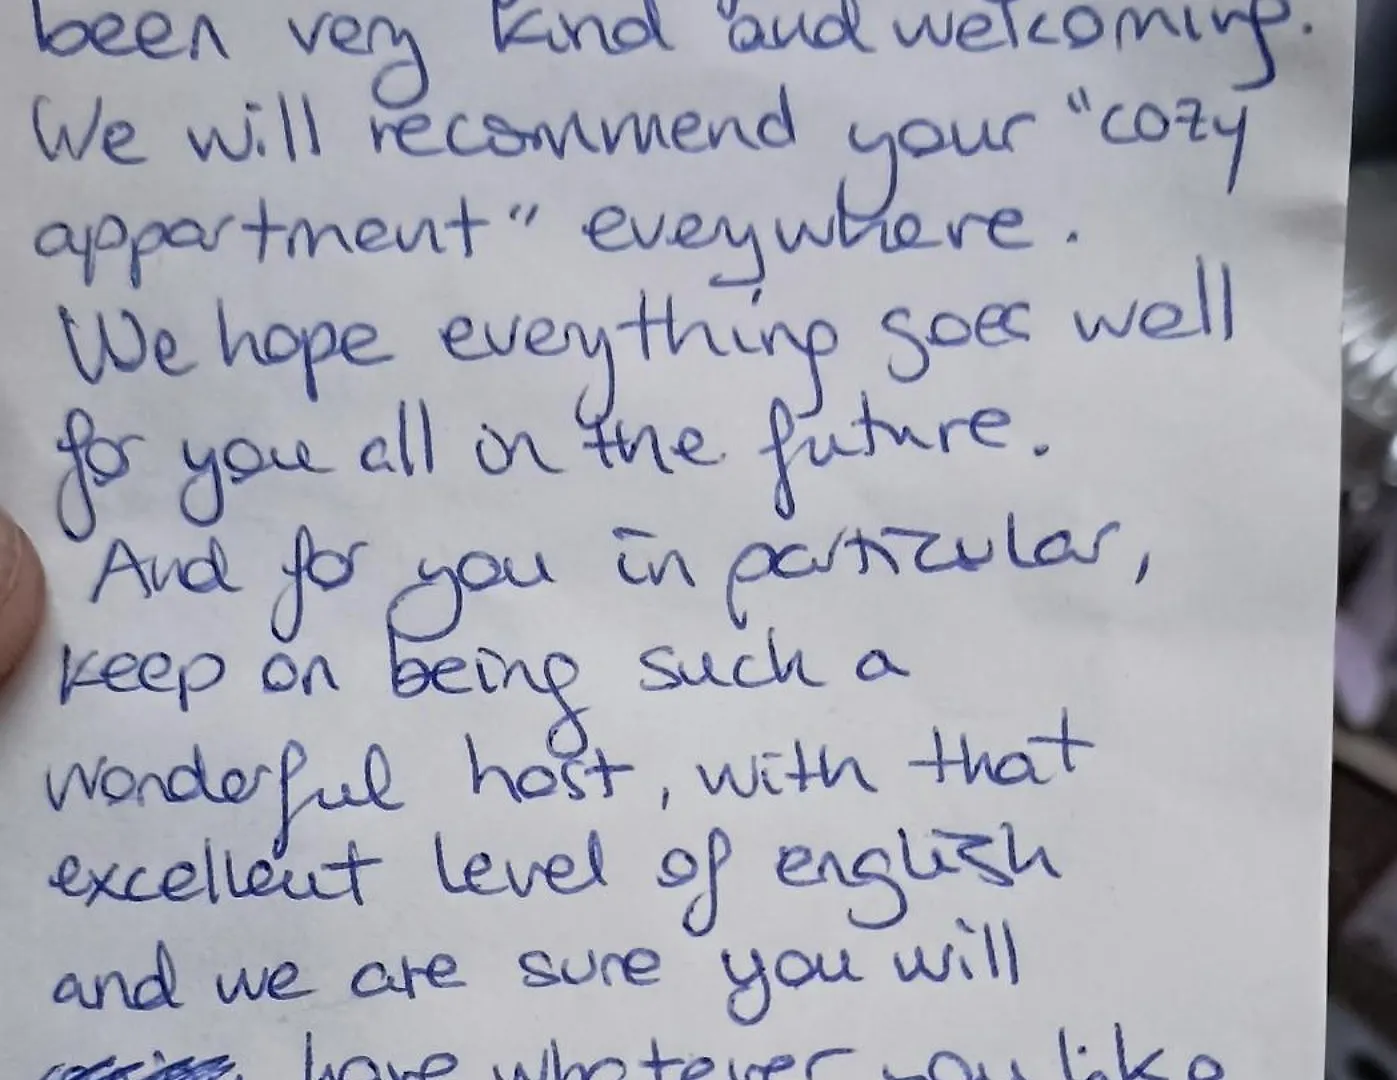 been very kind and welcoming.
We will recommend your "cozy
appartment" eveywhere.
We hope everything goes well
for you all in the future.
And for you in particular,
keep on being such a
wonderful host, with that
excellent level of english
and we are sure you will
have whatever you like